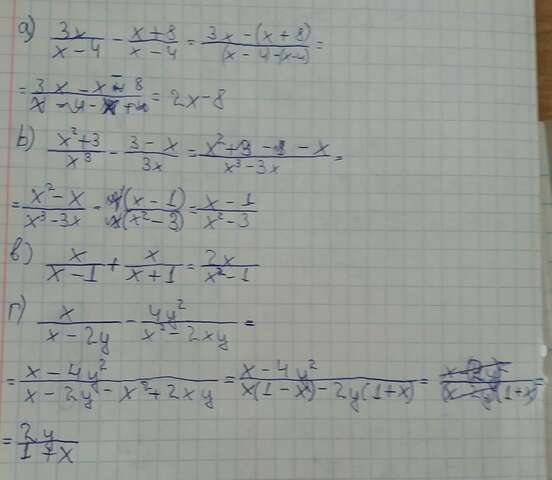 а) 3x/(x-4) - (x+8)/(x-4) = (3x-(x+8))/((x-4)-(x-4)) =
= (3x-x-8)/(x-4-x+4) = 2x-8
b) (x²+3)/x³ - (3-x)/3x = (x²+3-3-x)/(x³-3x) =
= (x²-x)/(x³-3x) = x(x-1)/x(x²-3) = (x-1)/(x²-3)
в) x/(x-1) + x/(x+1) = 2x/(x²-1)
г) x/(x-2y) - 4y²/(x²-2xy) =
= (x-4y²)/(x-2y-x²+2xy) = (x-4y²)/(x(1-x)-2y(1+x)) =
= 2y/(1+x)